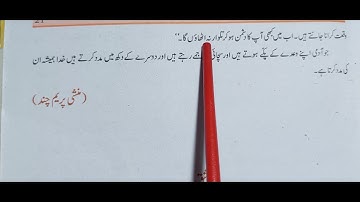 وقت کرانا جانتے ہیں۔ اب میں کبھی آپ کا دشمن ہو کر تلوار نہ اٹھاؤں گا۔"
جو آدمی اپنے وعدے کے پکے ہوتے ہیں اور سچائی جمے رہتے ہیں اور دوسرے کے دکھ میں مدد کرتے ہیں خدا ہمیشہ ان
کی مدد کرتا ہے۔
(منشی پریم چند)